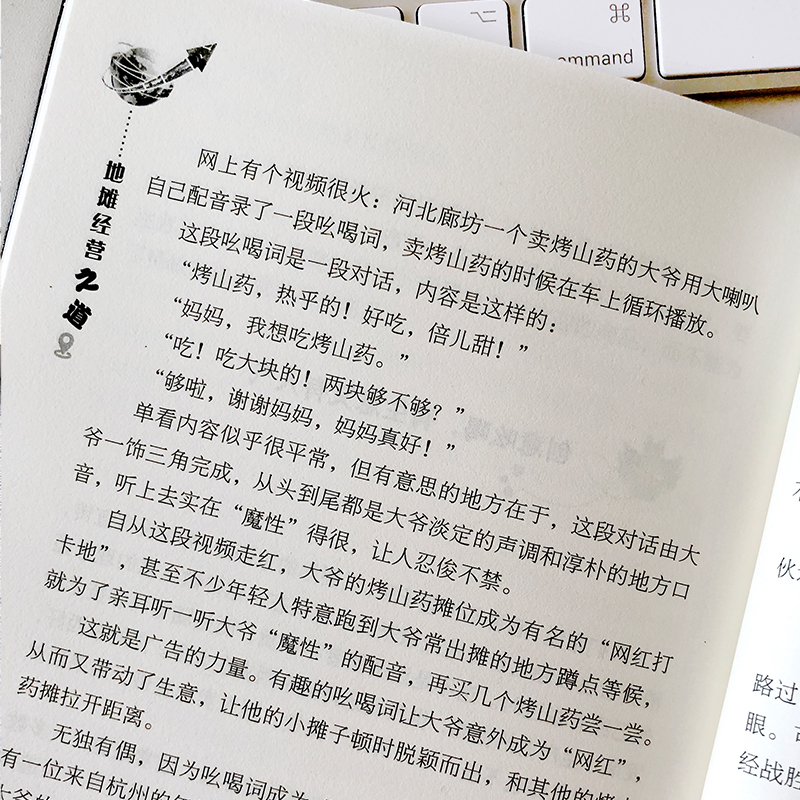 ⌥
⌘
command
地摊经营之道
网上有个视频很火：河北廊坊一个卖烤山药的大爷用大喇叭
自己配音录了一段吆喝词，卖烤山药的时候在车上循环播放。
这段吆喝词是一段对话，内容是这样的：
“烤山药，热乎的！好吃，倍儿甜！”
“妈妈，我想吃烤山药。”
“吃！吃大块的！两块够不够？”
“够啦，谢谢妈妈，妈妈真好！”
单看内容似乎很平常，但有意思的地方在于，这段对话由大
爷一饰三角完成，从头到尾都是大爷淡定的声调和淳朴的地方口
音，听上去实在“魔性”得很，让人忍俊不禁。
自从这段视频走红，大爷的烤山药摊位成为有名的“网红打
卡地”，甚至不少年轻人特意跑到大爷常出摊的地方蹲点等候，
就为了亲耳听一听大爷“魔性”的配音，再买几个烤山药尝一尝。
这就是广告的力量。有趣的吆喝词让大爷意外成为“网红”，
从而又带动了生意，让他的小摊子顿时脱颖而出，和其他的烤山
药摊拉开距离。
无独有偶，因为吆喝词成为
有一位来自杭州的
路过
眼。
经战胜